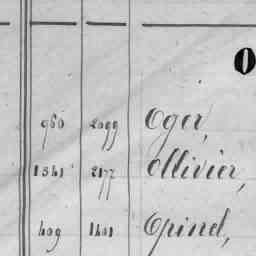 O
980 2099 Oger,
1541 2177 Ollivier,
409 1401 Opinel,